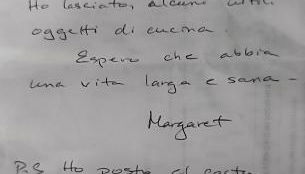 Ho lasciato, alcuni utili
oggetti di cucina.
Espero che abbia
una vita larga e sana -
Margaret
P.S Ho posto el